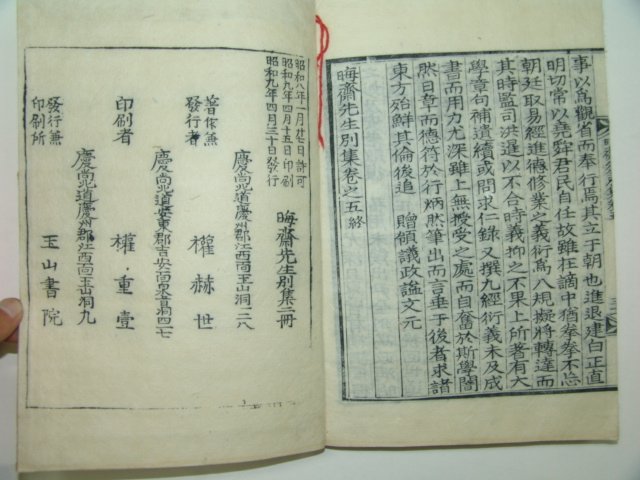 事以爲觀省而奉行焉其立于朝也進退建白正直
明切常以堯舜君民自任故雖在謫中猶拳拳不忘
朝廷取易經進德修業之義衍爲八規擬將轉達而
其時監司洪暹以不合時義抑之不果上所著有大
學章句補遺續或問求仁錄又撰九經衍義未及成
書而用力尤深雖上無授受之處而自奮於斯學闇
然日章而德符於行炳然筆出而言垂于後者求諸
東方殆鮮其倫後追 贈領議政諡文元
晦齋先生別集卷之五終
昭和八年一月廿日許可
昭和九年四月十五日印刷
昭和九年四月三十日發行
晦齋先生別集二冊
慶尙北道慶州郡江西面玉山洞二八
著作兼
發行者 權赫世
慶尙北道安東郡吉安面泉旨洞四一七
印刷者 權重壹
慶尙北道慶州郡江西面玉山洞九
發行兼
印刷所 玉山書院